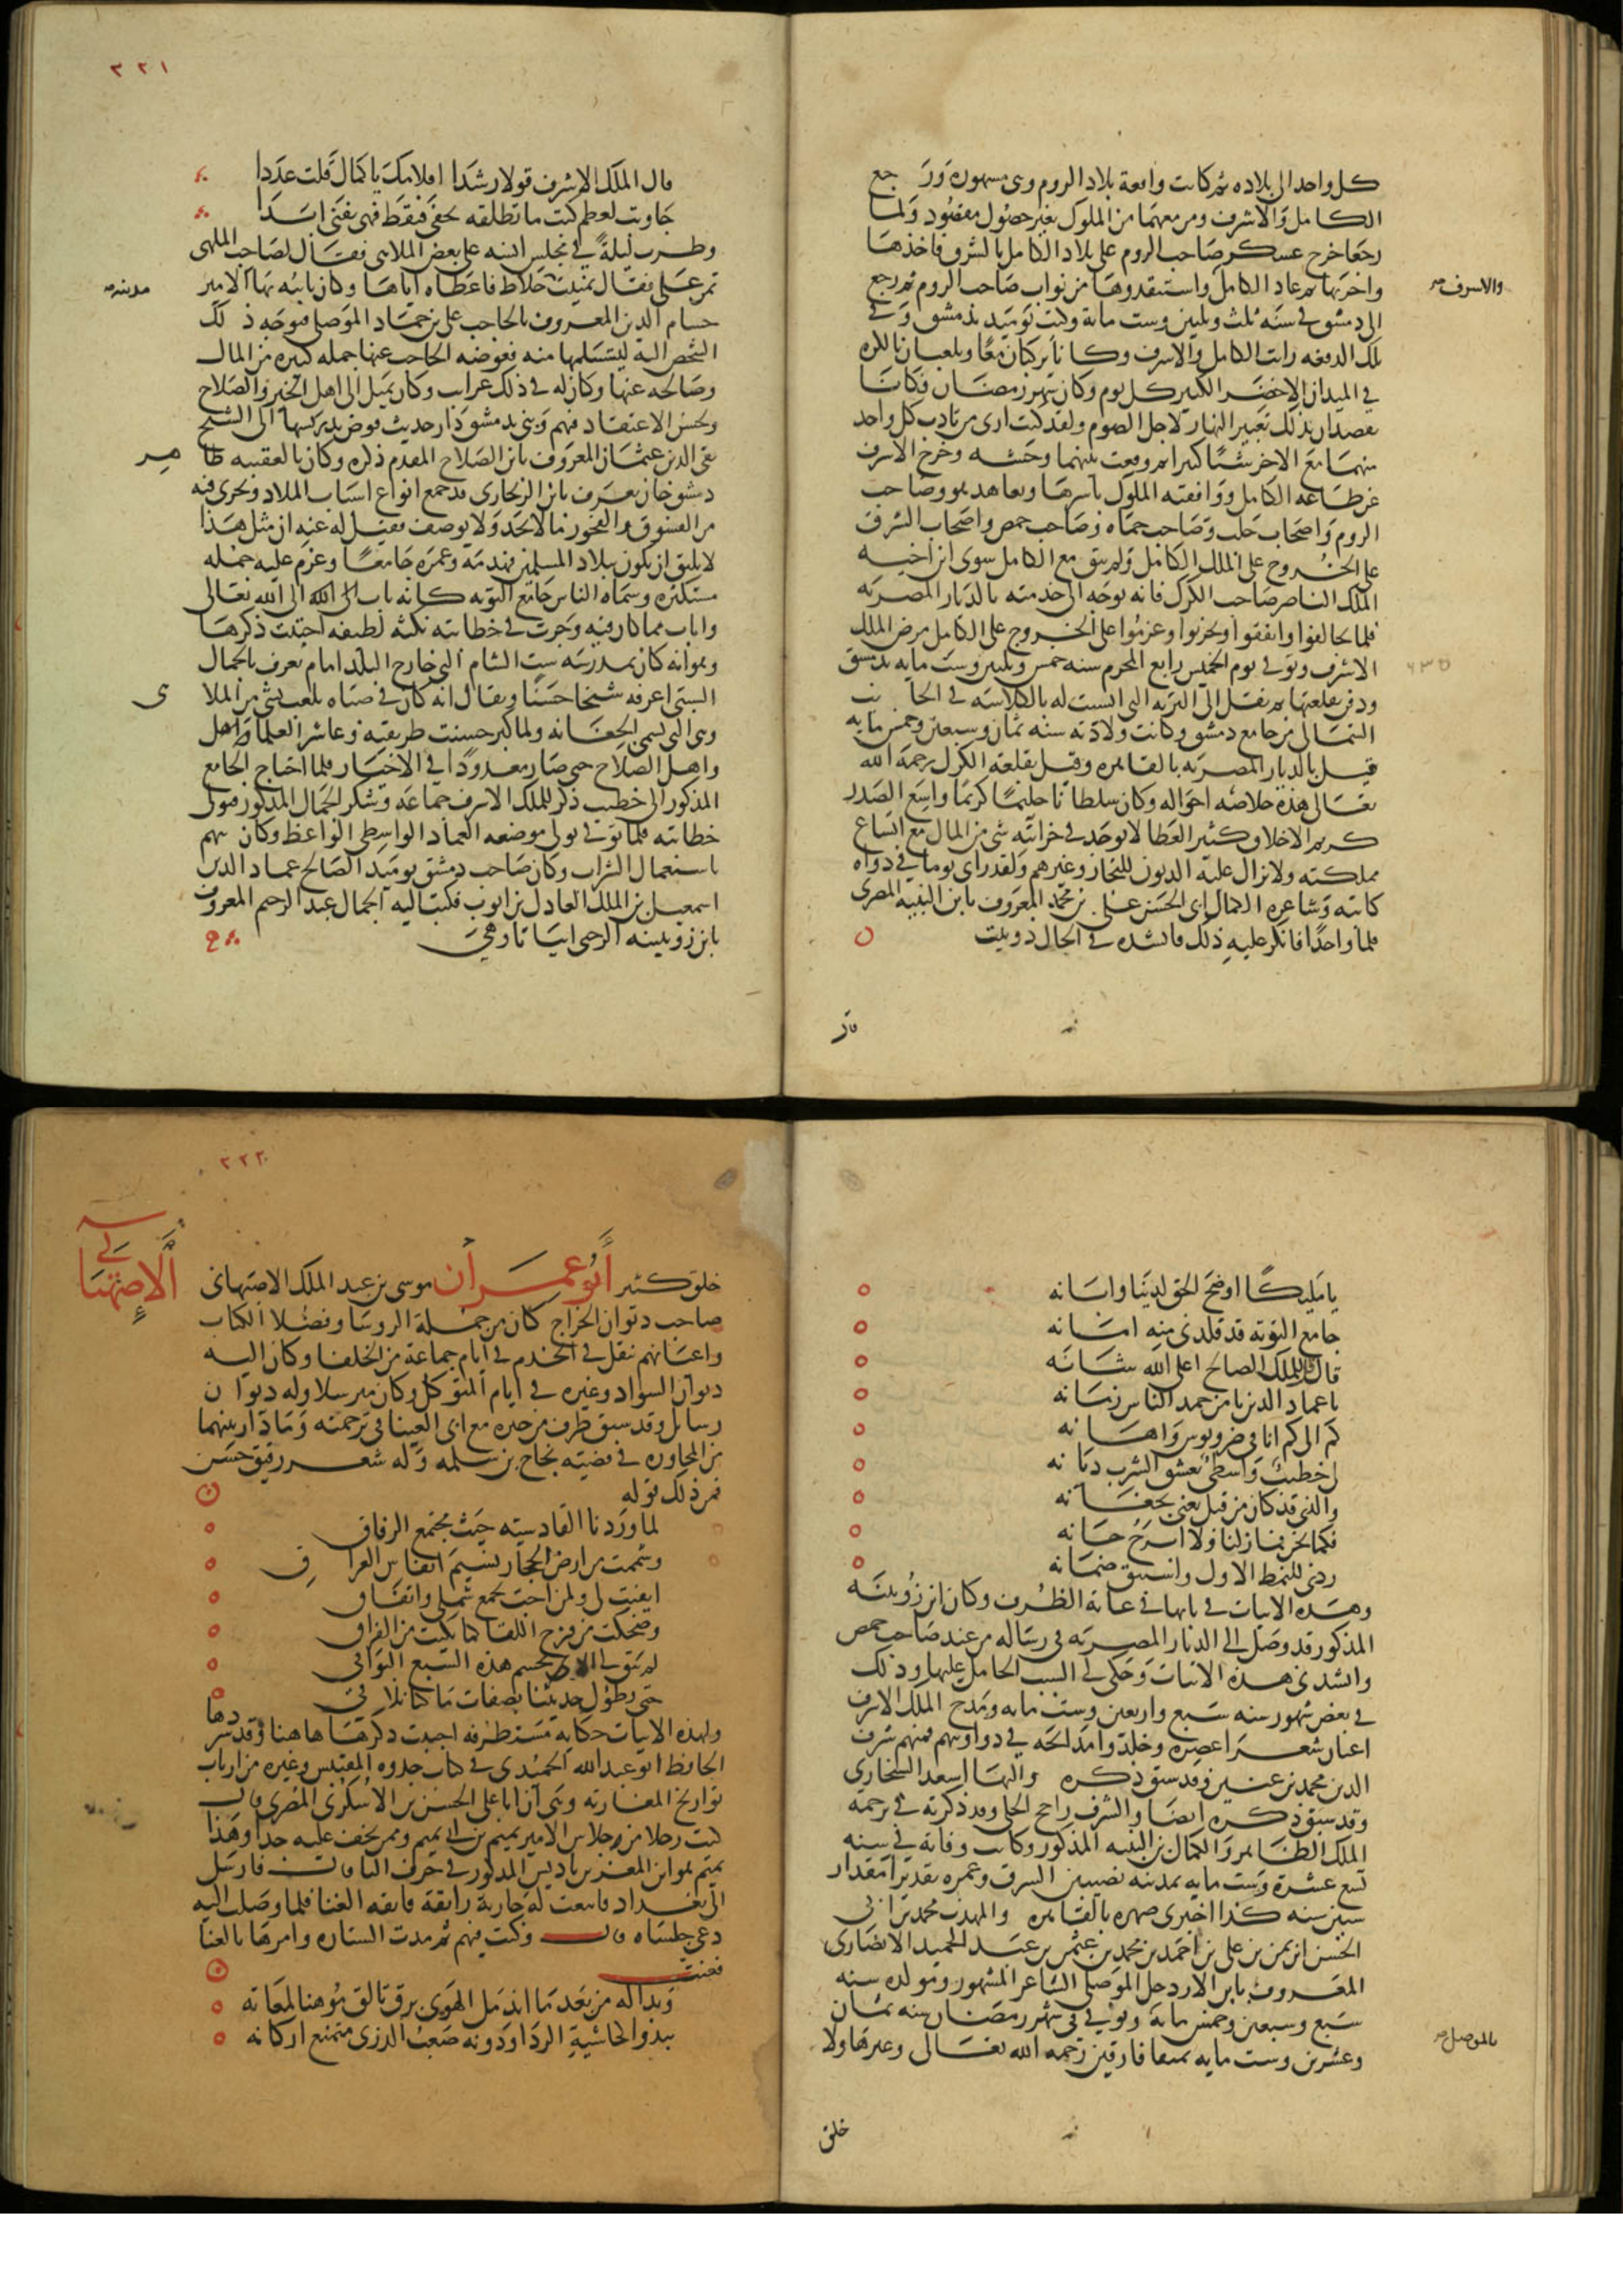 كل واحد الى بلاده ثم كانت واقعة بلاد الروم وهى مشهورة ورجع
الكامل والاشرف ومن معهما من الملوك بغير حصول مقصود ولما
رجعا خرج عسكر صاحب الروم على بلاد الكامل بالشرق فاخذها
واخربها ثم عاد الكامل واستنقذوها من نواب صاحب الروم ثم رجع
والاشرف صح
الى دمشق فى سنه ثلث وثلثين وست مائة وكنت يوميد بدمشق وفى
تلك الدفعه رايت الكامل والاشرف وكانا يركبان معًا ويلعبان بالكره
فى الميدان الاخضر الكبير كل يوم وكان شهر رمضان فكانا
يقصدان بذلك تعبير النهار لاجل الصوم ولقد كنت ارى من تادب كل واحد
منهما مع الاخر شيًا كثيرا ثم وقعت بينهما وحشه وخرج الاشرف
عن طاعه الكامل ووافقته الملوك باسرها وتعاهد هو وصاحب
الروم واصحاب حلب وصاحب حماه وصاحب حمص واصحاب الشرق
على الخروج على الملك الكامل ولم يبق مع الكامل سوى ابن اخيه
الملك الناصر صاحب الكرك فانه توجه الى خدمته بالديار المصريه
فلما تحالفوا واتفقوا وتحزبوا وعزموا على الخروج على الكامل مرض الملك
الاشرف وتوفى يوم الخميس رابع المحرم سنه خمس وثلثين وست مايه بدمشق
٦٣٥
ودفن بقلعتها ثم نقل الى التربه التى انشئت له بالكلاسه فى الجانب
الشمالى من جامع دمشق وكانت ولادته سنه ثمان وسبعين وخمس مايه
قيل بالديار المصريه بالقاهره وقيل بقلعة الكرك رحمه الله
تعالى هذه خلاصه احواله وكان سلطانًا حليمًا كريمًا واسع الصدر
كريم الاخلاق كثير العطا لا يوجد فى خزانته شى من المال مع اتساع
مملكته ولا تزال عليه الديون للتجار وغيرهم ولقد راى يوما فى دواه
كاتبه وشاعره الكمال ابى الحسن على بن محمد المعروف بابن النبيه المصرى
قلما واحدًا فانكر عليه ذلك فانشده فى الحال دوبيت
قال
٣٢١
قال الملك الاشرف قولا رشدا اقلامك يا كمال قلت عددا
جاوبت لعظم كتب ما تطلقه تحفى فتقط فهى تفنى ابدا
وطرب ليلةً فى مجلس انسه على بعض الملاهى فقال لصاحب الملهى
تمن على فقال تمنيت خلاط فاعطاه اياها وكان نائبه بها الامير
مدينة صح
حسام الدين المعروف بالحاجب على بن حماد الموصلى فتوجه ذلك
الشخص اليه ليتسلمها منه فعوضه الحاجب عنها جمله كثيره من المال
وصالحه عنها وكان له فى ذلك غرايب وكان يميل الى اهل الخير والصلاح
ويحسن الاعتقاد فيهم وبنى بدمشق دار حديث فوض تدريسها الى الشيخ
تقى الدين عثمان المعروف بابن الصلاح المقدم ذكره وكان بالعقيبه ظاهر
دمشق خان يعرف بابن الزنجارى قد جمع انواع اسباب الملاذ ويجرى فيه
من الفسوق والفجور ما لا يحد ولا يوصف فقيل له عنه ان مثل هذا
لا يليق ان يكون ببلاد المسلمين فهدمه وعمره جامعًا وغرم عليه جمله
مستكثره وسماه الناس جامع التوبه كانه تاب الى الله تعالى
واناب مما كان فيه وجرت فى خطابته نكته لطيفه احببت ذكرها
وهو انه كان بمدرسه ست الشام التى خارج البلد امام يعرف بالجمال
البستى اعرفه شيخا حسنًا ويقال انه كان فى صباه يلعب بشى من الملاهى
وهى التى تسمى الجغانه ولما كبر حسنت طريقته وعاشر العلما
واهل الصلاح حتى صار معدودًا فى الاخيار فلما احتاج الجامع
المذكور الى خطيب ذكر للملك الاشرف جماعه وشكر الجمال المذكور فتولى
خطابته فلما توفى تولى موضعه العماد الواسطى الواعظ وكان يتهم
باستعمال الشراب وكان صاحب دمشق يوميذ الصالح عماد الدين
اسمعيل بن الملك العادل بن ايوب فكتب اليه الجمال عبد الرحيم المعروف
بابن زويتينه الرحبى ابياتا وهى
يا مليكًا اوضح الحق لدينا وابانه
جامع التوبه قد قلدنى منه امانه
قال قل للملك الصالح اعلى الله شانه
يا عماد الدين يا من حمد الناس زمانه
كم الى كم انا فى ضر وبوس واهانه
لى خطيب واسطى يعشق الشرب ديانه
والذى قد كان من قبل يغنى بجغانه
فكما نحن فما زلنا ولا ابرح حانه
ردنى للنمط الاول واستبق ضمانه
وهذه الابيات فى بابها فى غاية الظرف وكان ابن زويتينه
المذكور قد وصل الى الديار المصريه فى رساله من عند صاحب حمص
وانشدنى هذه الابيات وحكى لى السبب الحامل عليها وذلك
فى بعض شهور سنه سبع واربعين وست مايه ومدح الملك الاشرف
اعيان شعراعصره وخلدوا مدائحه فى دواوينهم فمنهم شرف
الدين محمد بن عنين وقد سبق ذكره والبها اسعد السنجارى
وقد سبق ذكره ايضا والشرف راجح الحلى وقد ذكرته فى ترجمه
الملك الظاهر والكمال بن النبيه المذكور وكانت وفاته فى سنه
تسع عشرة وست مايه بمدينه نصيبين الشرق وعمره تقديرًا مقدار
ستين سنه كذا اخبرنى صهره بالقاهره والمهذب محمد بن ابى
الحسن ابن يمن بن على بن احمد بن محمد بن عثمن بن عبد الحميد الانصارى
المعروف بابن الاردخل الموصلى الشاعر المشهور ومولده سنه
سبع وسبعين وخمس مايه وتوفى فى شهر رمضان سنه ثمان
بالموصل صح
وعشرين وست مايه بميافارقين رحمه الله تعالى وغيرها ولا
خلق
٣٢٢
خلق كثير أبو عمران موسى بن عبد الملك الاصبهانى
الإصبهانى
صاحب ديوان الخراج كان من جملة الروسا وفضلا الكتاب
واعيانهم تنقل فى الخدم فى ايام جماعة من الخلفا وكان اليه
ديوان السواد وغيره فى ايام المتوكل وكان مترسلا وله ديوان
رسائل وقد سبق طرف من خبره مع ابى العينا فى ترجمته وما دار بينهما
من المحاوره فى قضيته نجاح بن سلمه وله شعر رقيق حسن
فمن ذلك قوله
لما وردنا القادسيه حيث مجتمع الرفاق
وشممت من ارض الحجاز نسيم انفاس العراق
ايقنت لى ولمن احب بجمع شمل واتفاق
وضحكت من فرح اللقا كما بكيت من الفراق
لم يبق لى الا تجشم هذه السبع البواقى
حتى يطول حديثنا بصفات ما كنا نلاقى
ولهذه الابيات حكايه مستطرفه احببت ذكرها هاهنا وقد سردها
الحافظ ابو عبد الله الحميدى فى كتاب جذوه المقتبس وغيره من ارباب
تواريخ المغاربه وهى ان ابا على الحسن بن الاسكرى المصرى قال
كنت رجلا من جلاس الامير تميم بن ابى تميم وممن يخف عليه جدا وهذا
تميم هو ابن المعز بن باديس المذكور فى حرف التا قال فارسل
الى بغداد فابتعت له جارية رايقة فايقه الغنا فلما وصلت اليه
دعى جلساه قال وكنت فيهم ثم مدت الستاره وامرها بالغنا
فغنت
وبدا له من بعد ما اندمل الهوى برق تالق موهنا لمعانه
يبدو كحاشية الردا ودونه صعب الذرى متمنع اركانه